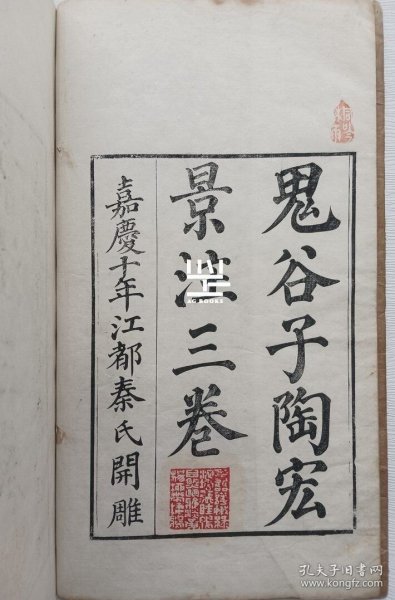 鬼谷子陶宏
景注三卷
嘉慶十年江都秦氏開雕
AG BOOKS
孔夫子旧书网
www.kongfz.com